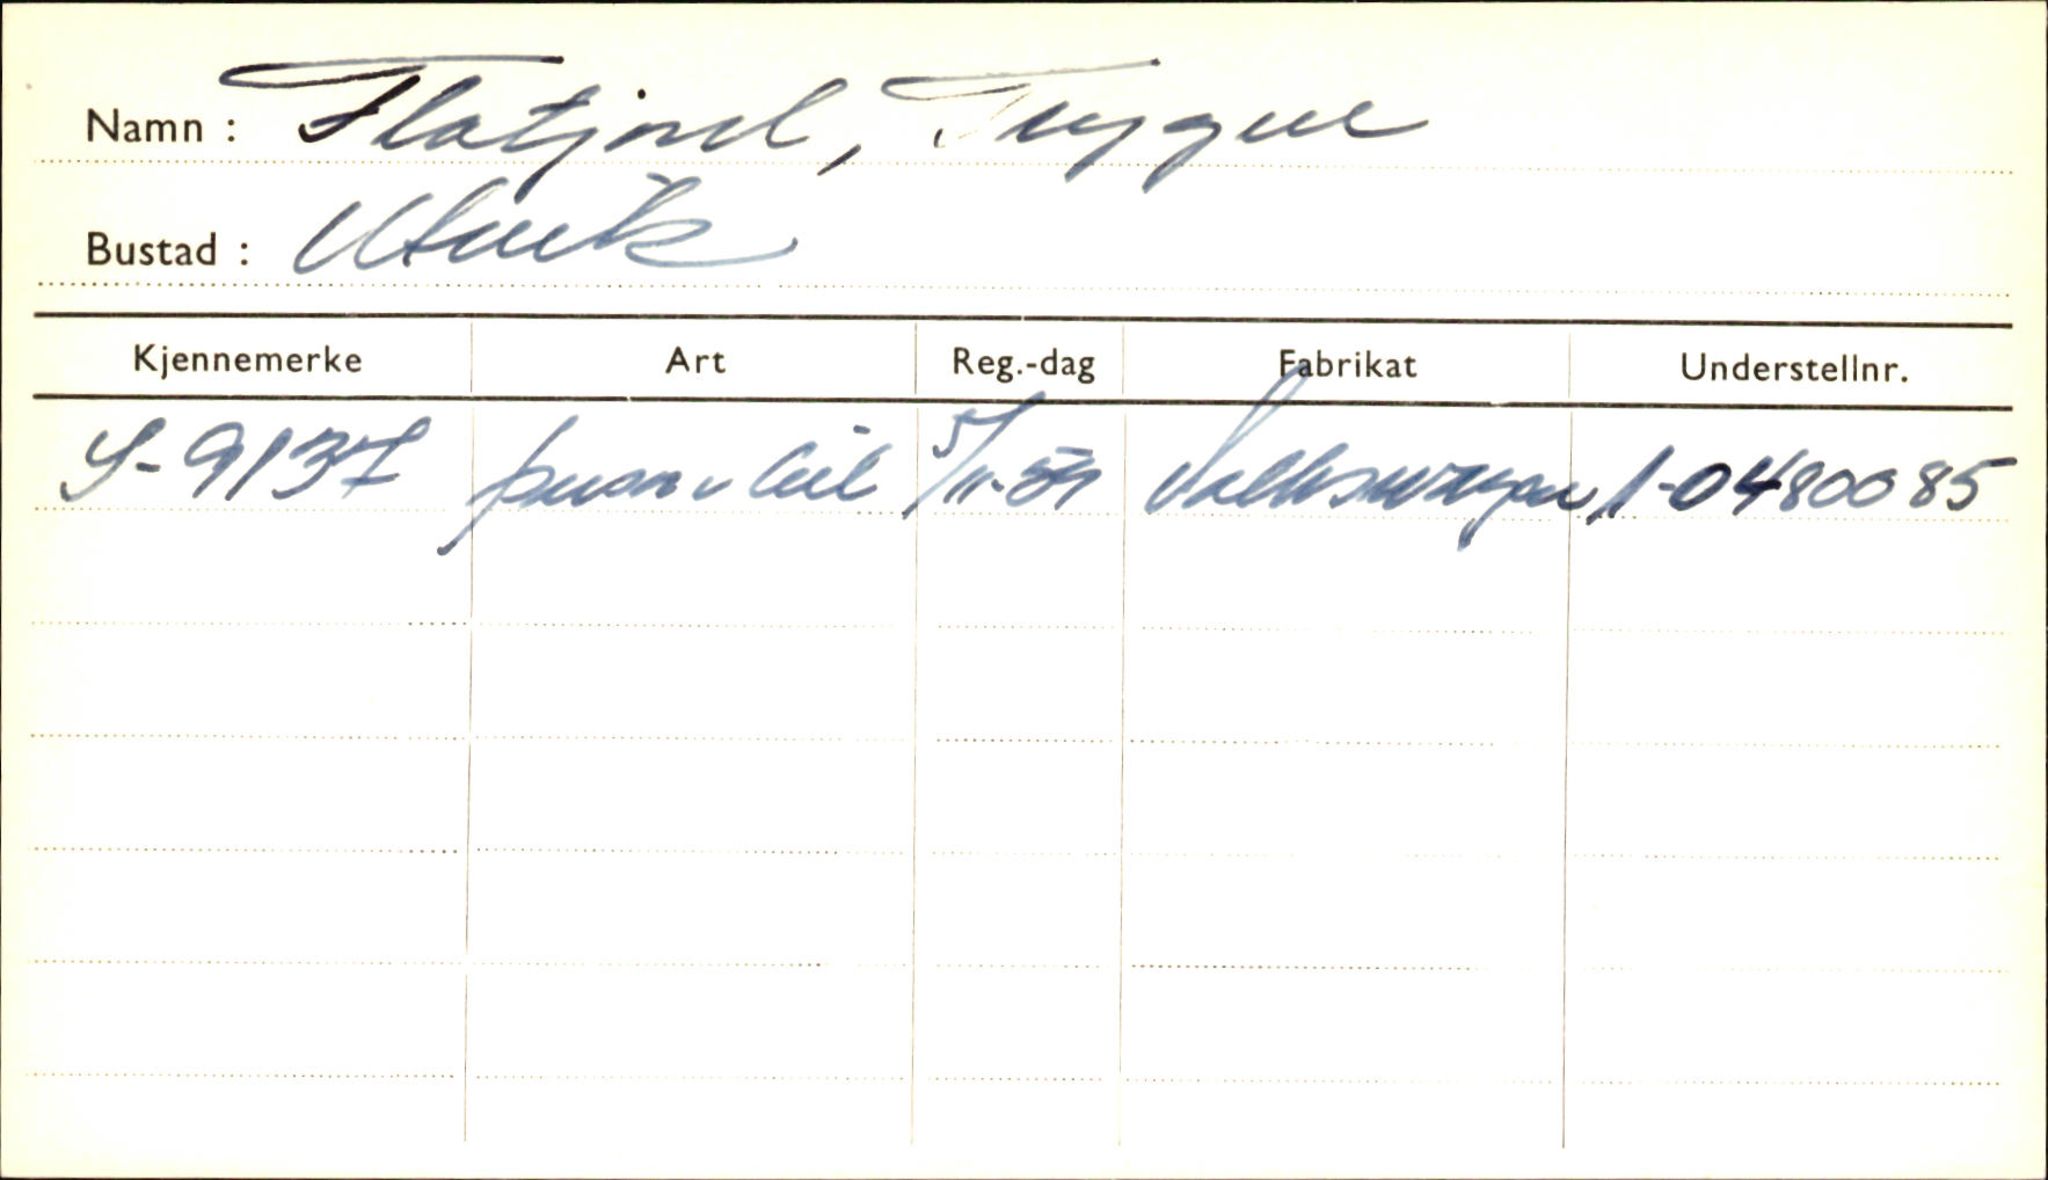 Namn : Flatjord, Trygve
Bustad : Utvik
Kjennemerke Art Reg.-dag Fabrikat Understellnr.
S-9137 personbil 5/11-54 Volkswagen 1-0480085